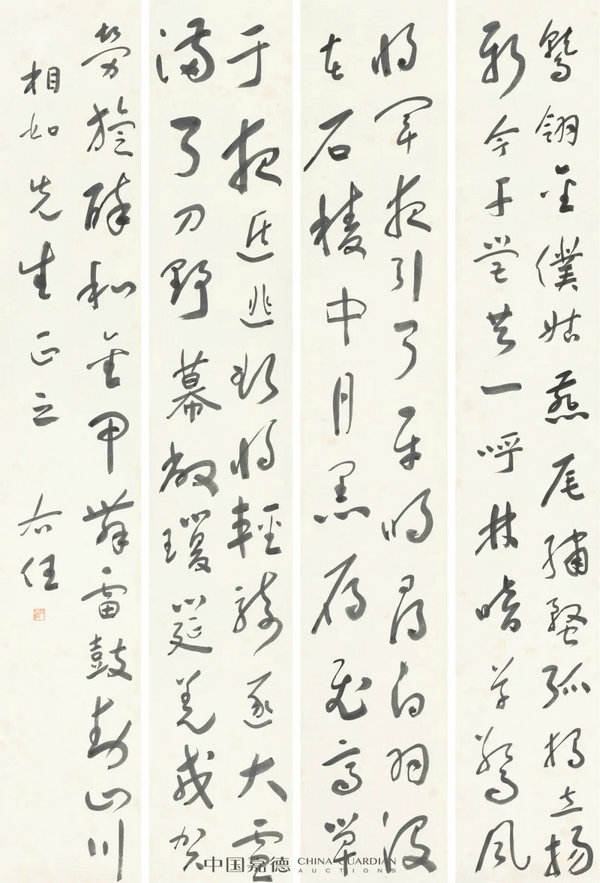 鷲翎金僕姑燕尾繡蝥弧獨立揚
新令千營共一呼林暗草驚風
將軍夜引弓平明尋白羽沒
在石稜中月黑雁飛高單
于夜遁逃欲將輕騎逐大雪
滿弓刀野幕敞瓊筵羌戎賀
勞旋醉和金甲舞雷鼓動山川
相如先生正之 右任
中国嘉德 CHINA GUARDIAN AUCTIONS